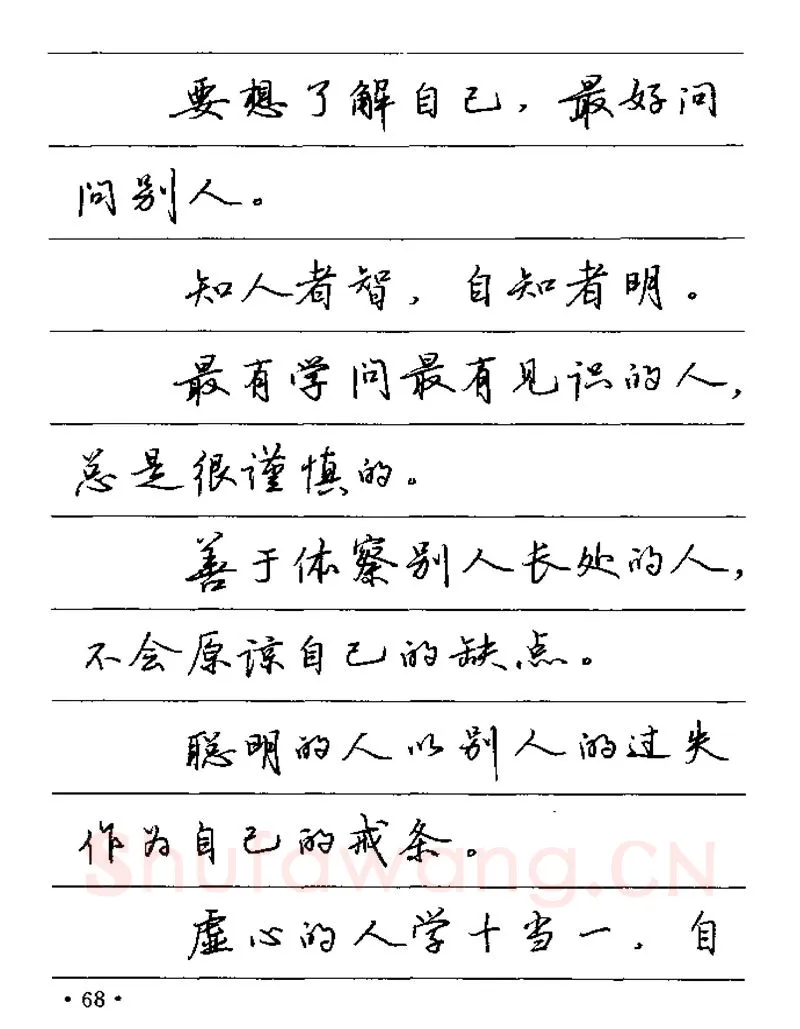 要想了解自己，最好问
问别人。
知人者智，自知者明。
最有学问最有见识的人，
总是很谨慎的。
善于体察别人长处的人，
不会原谅自己的缺点。
聪明的人以别人的过失
作为自己的戒条。
Shufawang.CN
虚心的人学十当一，自
·68·